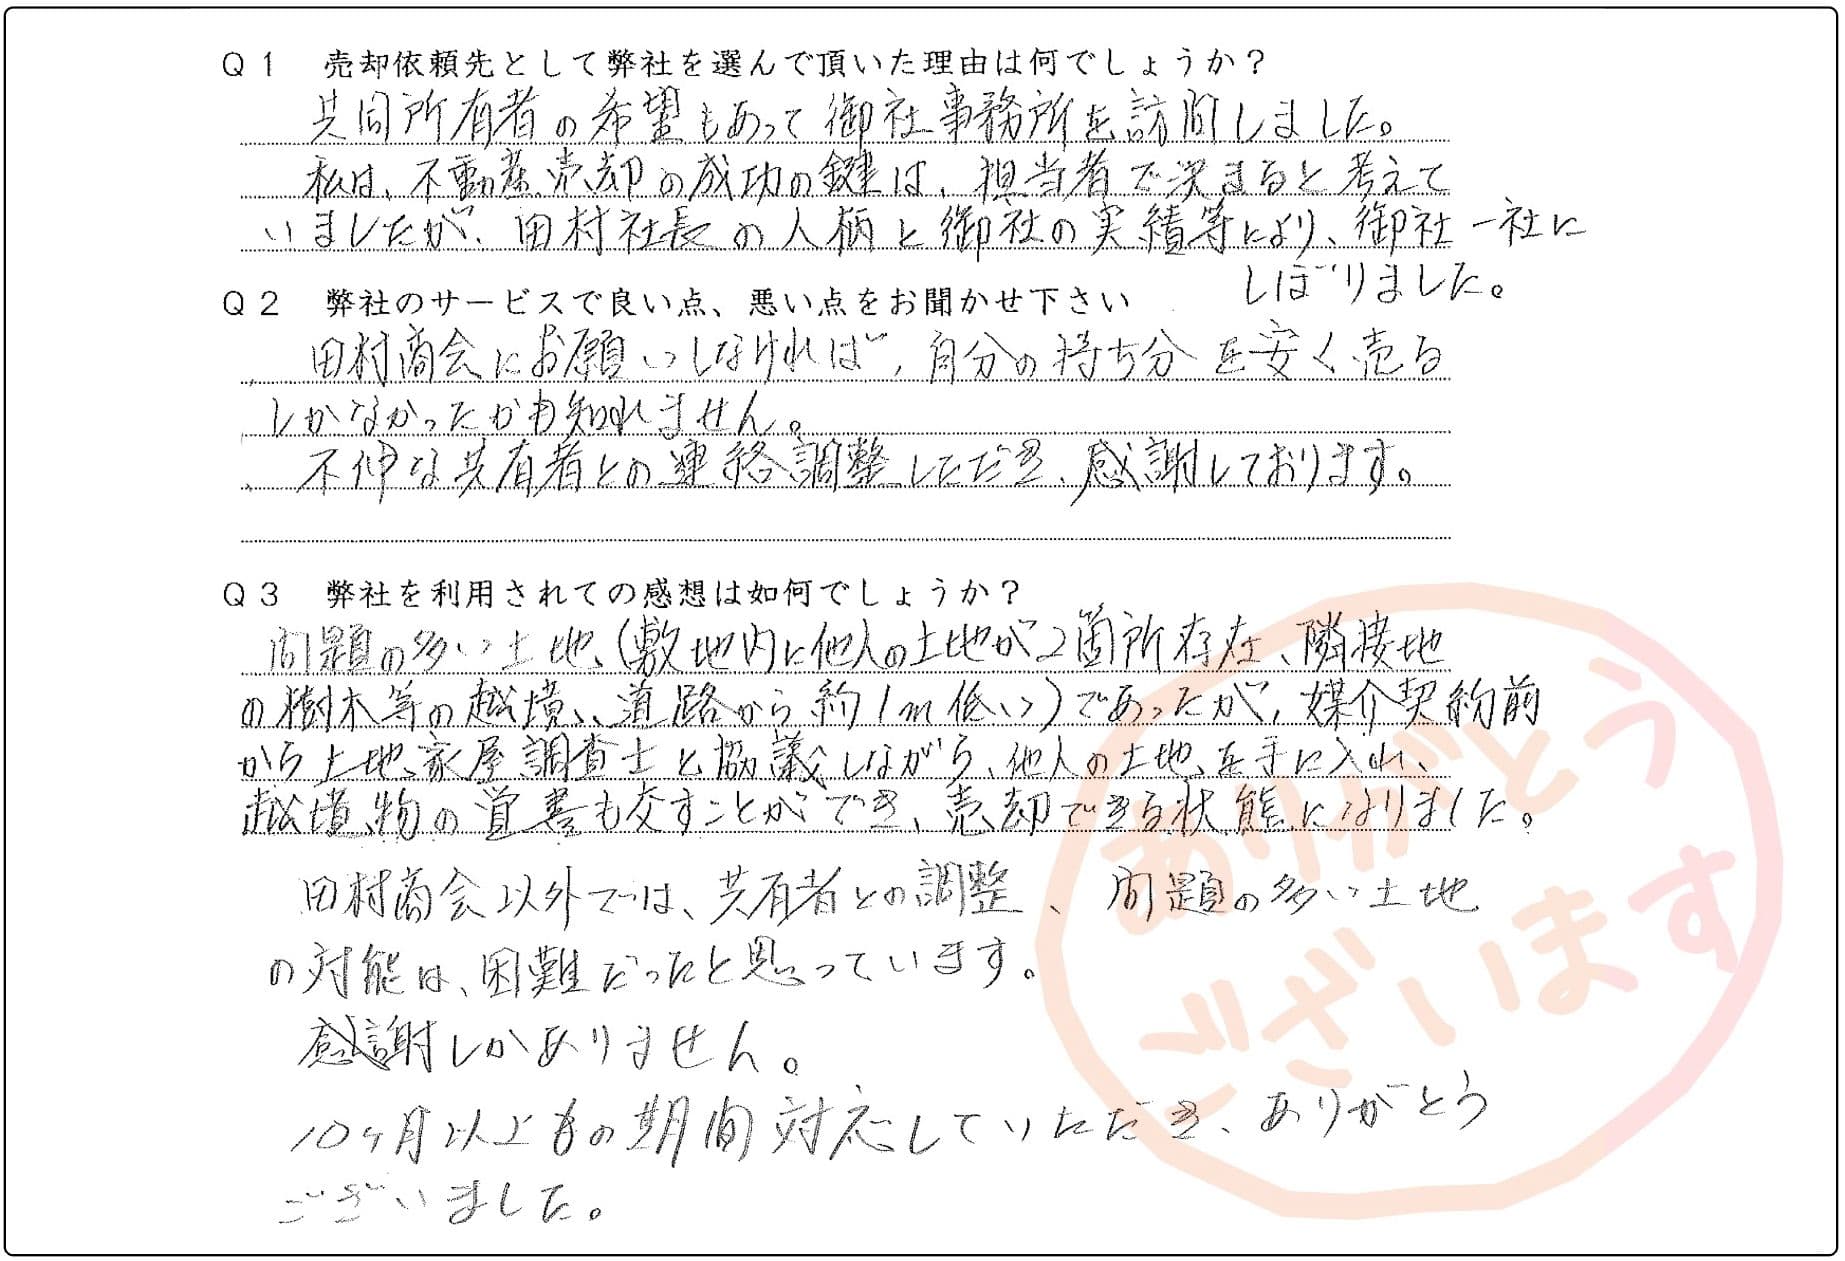 Q1　売却依頼先として弊社を選んで頂いた理由は何でしょうか？
共同所有者の希望もあって御社事務所を訪問しました。
私は、不動産売却の成功の鍵は、担当者で決まると考えて
いましたが、田村社長の人柄と御社の実績等により、御社一社に
しぼりました。
Q2　弊社のサービスで良い点、悪い点をお聞かせ下さい
田村商会にお願いしなければ、自分の持ち分を安く売る
しかなかったかも知れません。
不仲な共有者との連絡調整しただき、感謝しております。
Q3　弊社を利用されての感想は如何でしょうか？
問題の多い土地、(敷地内に他人の土地が2箇所存在、隣接地
の樹木等の越境、道路から約1m低い)であったが、媒介契約前
から土地家屋調査士と協議しながら、他人の土地を手に入れ、
越境物の覚書も交すことができ、売却できる状態になりました。
田村商会以外では、共有者との調整、問題の多い土地
の対能は、困難だったと思っています。
感謝しかありません。
10ヶ月以上もの期間対応していただき、ありがとう
ございました。
ありがとう
ございます